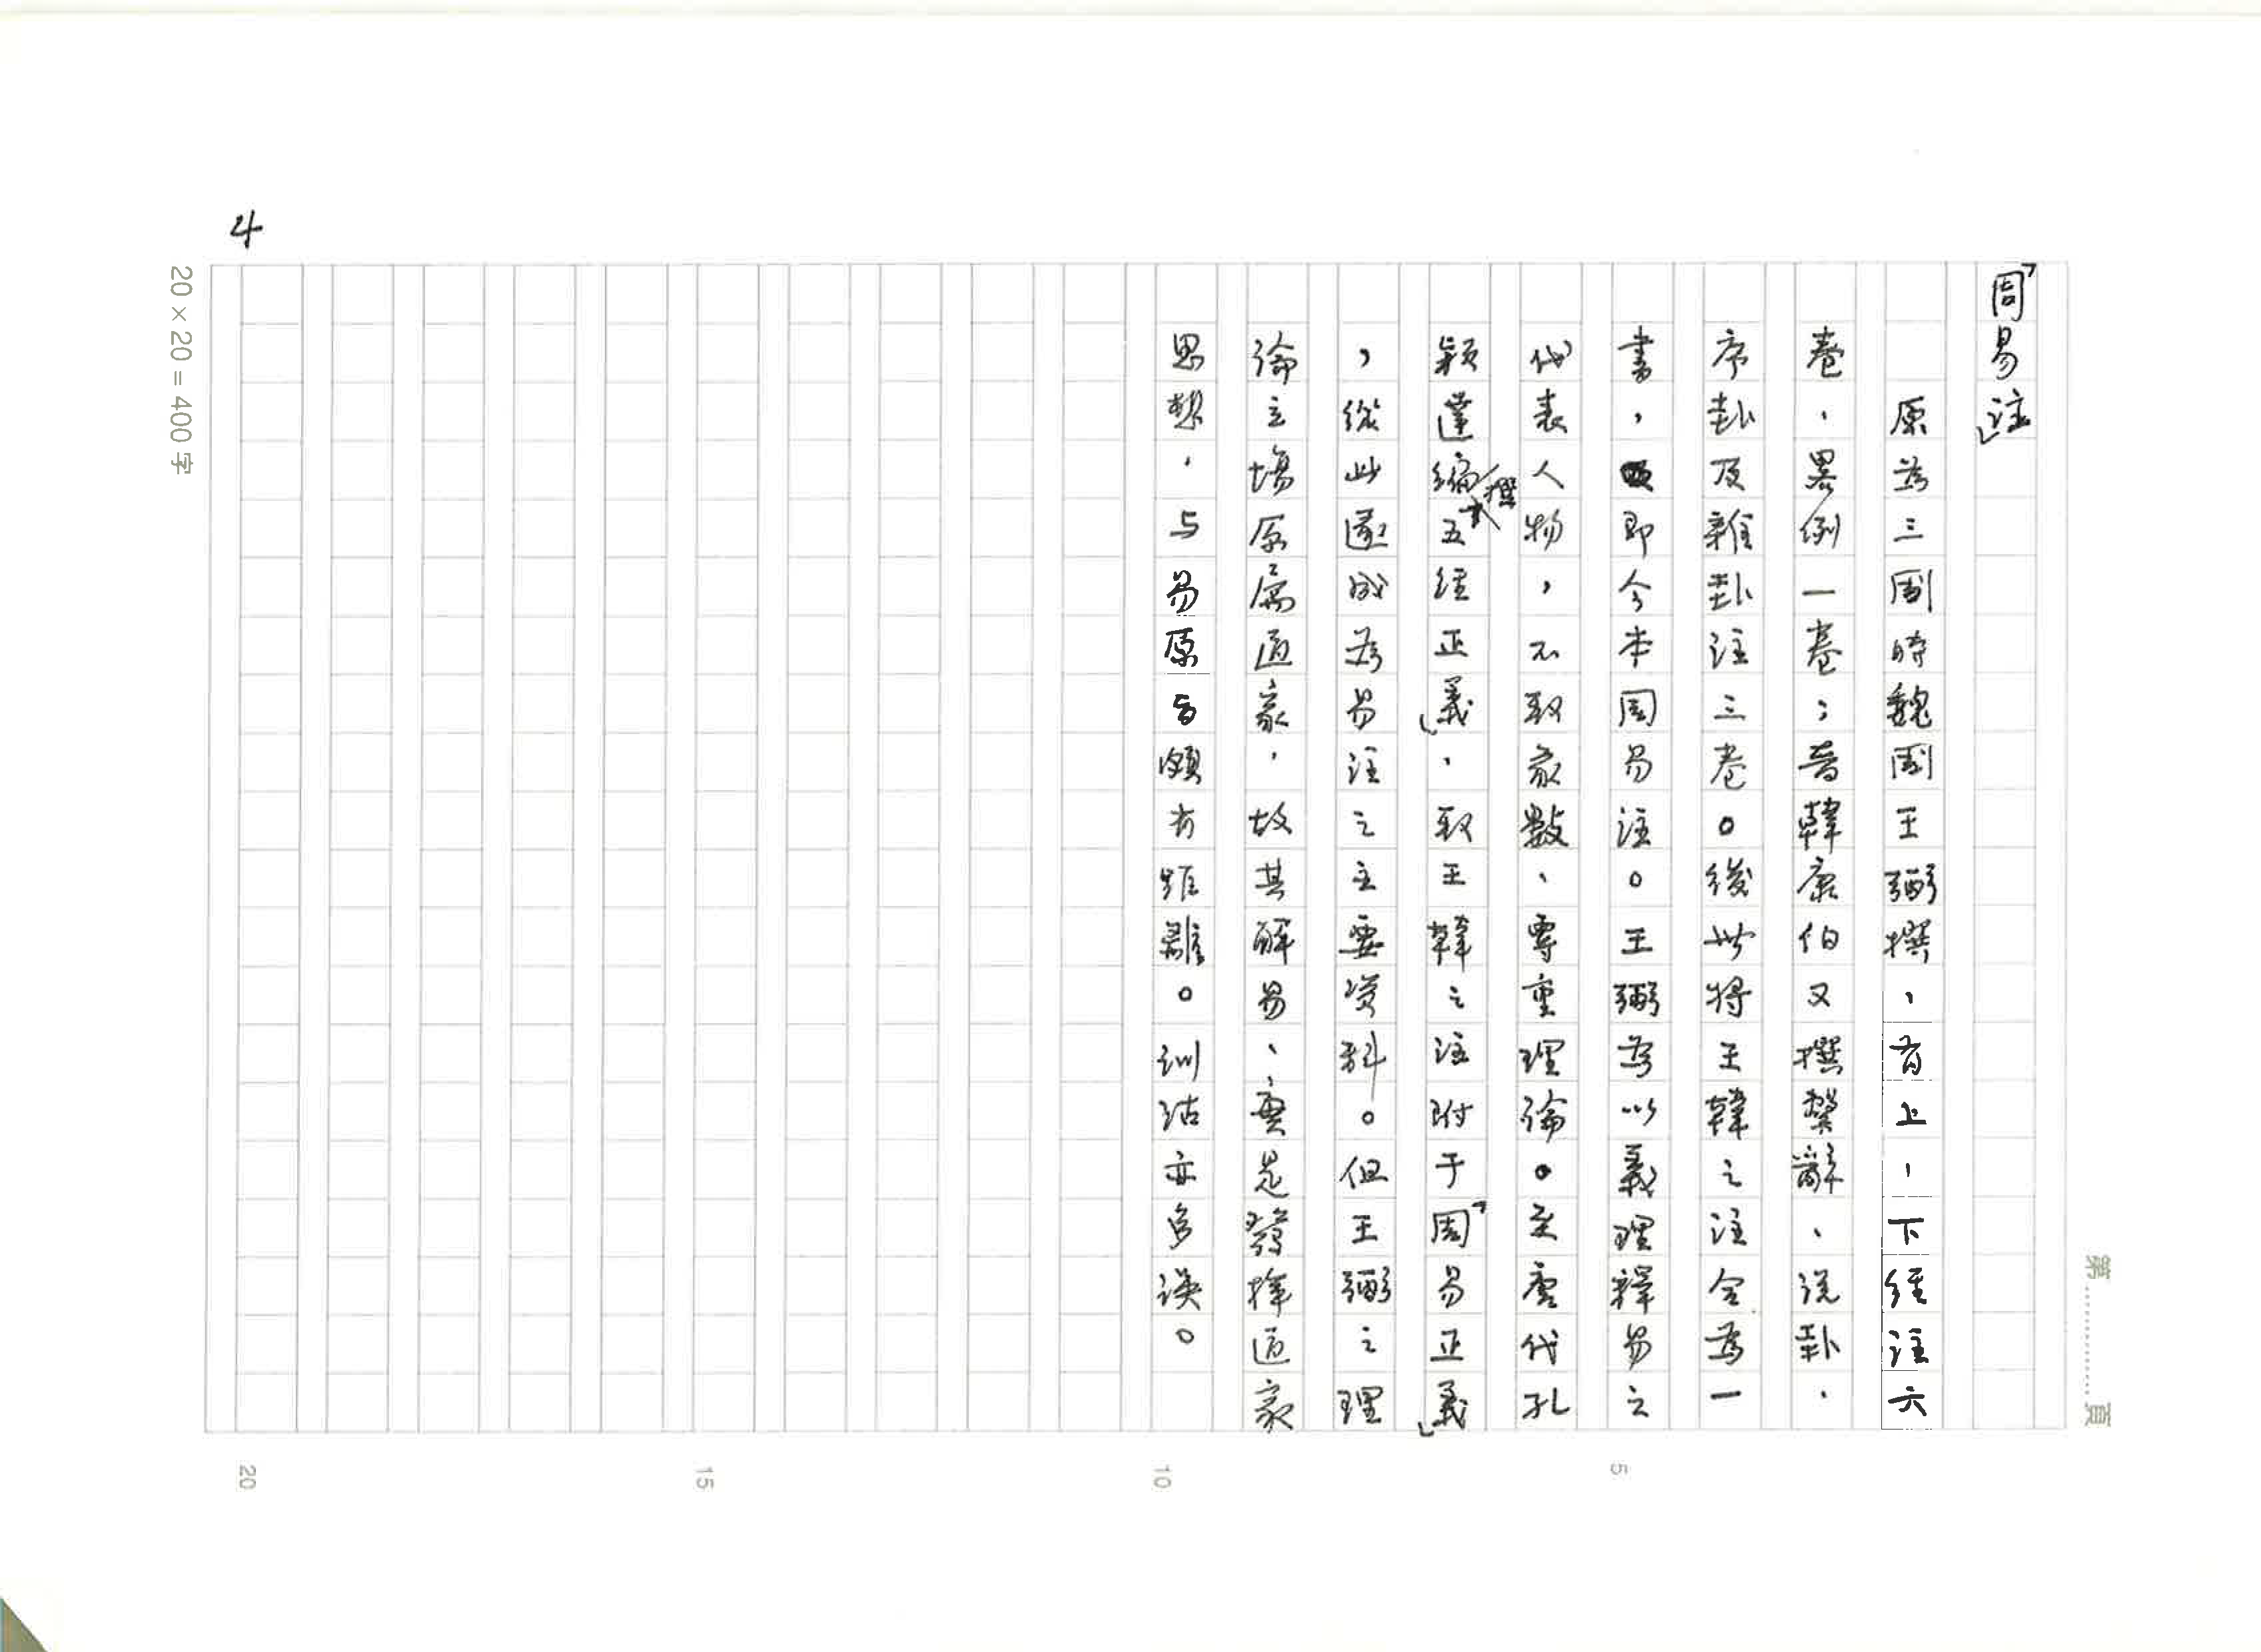 「周易注」
原為三國時魏國王弼撰，首上，下經注六
卷，畧例一卷；晉韓康伯又撰繫辭、說卦，
序卦及雜卦注三卷。後世將王韓之注合為一
書，即今本周易注。王弼為以義理釋易之
代表人物，不取象數、專重理論。至唐代孔
穎達編撰五經正義」，取王韓之注附于「周易正義」
，從此遂成為易注之主要資料。但王弼之理
論立場原屬道家，故其解易、實是發揮道家
思想，与易原旨頗有距離。訓詁亦多誤。
4
20×20=400字
第 頁
5
10
15
20